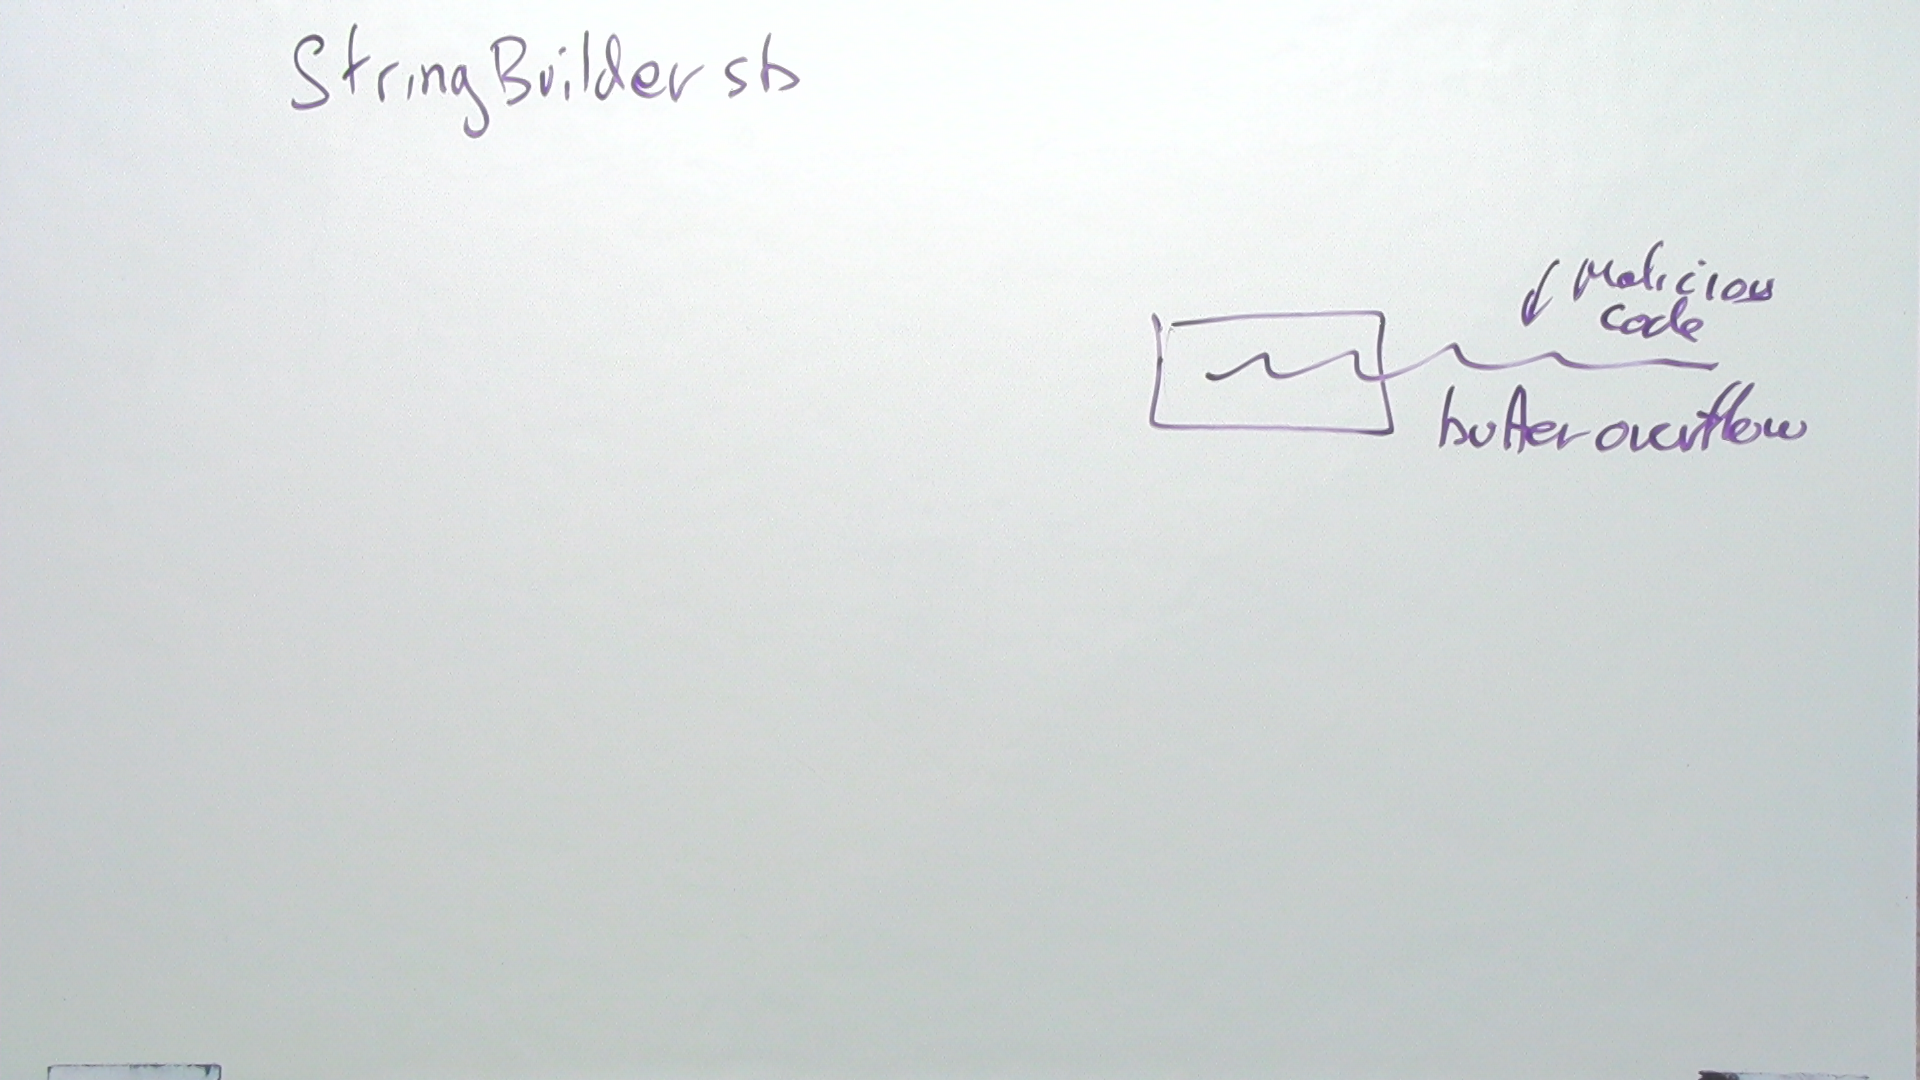 StringBuilder sb
malicious
code
buffer overflow